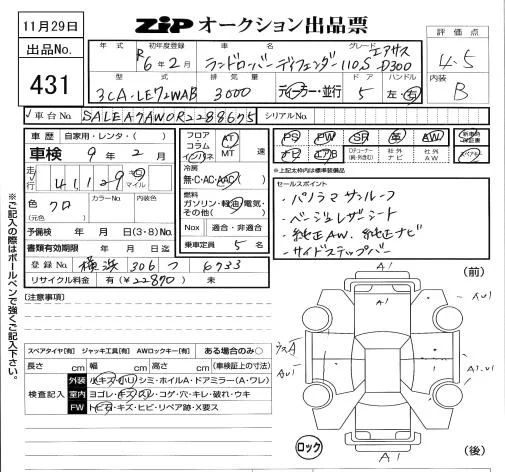 11月29日
ZiP オークション出品票
出品No.
431
年式 初年度登録 車名 グレード エアサス
R6年2月 ランドローバー ディフェンダー110S D300
評価点
4.5
内装
B
型式 排気量 ドア ハンドル
3CA-LE72WAB 3000 ディーラー・並行 5 左・右
車台No. SALEA7AW0R2288675 シリアルNo.
車歴 自家用・レンタ・( )
車検 9年2月
走行 41,129 キロ マイル
色 クロ カラーNo. 内装色
(元色)
予備検 年 月 日(3・8)No.
書類有効期限 年 月 日迄
登録No. 横浜 306 つ 6733
リサイクル料金 有(¥22870) 未
フロア
コラム
インパネ
AT
MT 速
冷房
無・C・AC・AAC
燃料
ガソリン・軽油・電気・
その他( )
Nox 適合・非適合
乗車定員 5名
PS PW SR 革 AW 新車時保証書
ナビ エアB Dチューナー(純・外含む) 社外ナビ 社外AW スペアキー
*上記太枠内は標準装備品
セールスポイント
・パノラマサンルーフ
・ベージュレザーシート
・純正AW、純正ナビ
・サイドステップバー
[注意事項]
スペアタイヤ[有] ジャッキ工具[有] AWロックキー[有] ある場合のみ○
長さ cm 幅 cm 高さ cm (車検証上の寸法)
検査記入
外装 小キズ・小凹・シミ・ホイルA・ドアミラー(A・ワレ)
室内 ヨゴレ・キズ・スレ・コゲ・穴・キレ・破れ・ウキ
FW トビ石・キズ・ヒビ・リペア跡・X要ス
※ご記入の際はボールペンで強くご記入下さい。
(前)
A1
A1
AW1
ウスA
AW1
A1.W1
ロック
A1
(後)